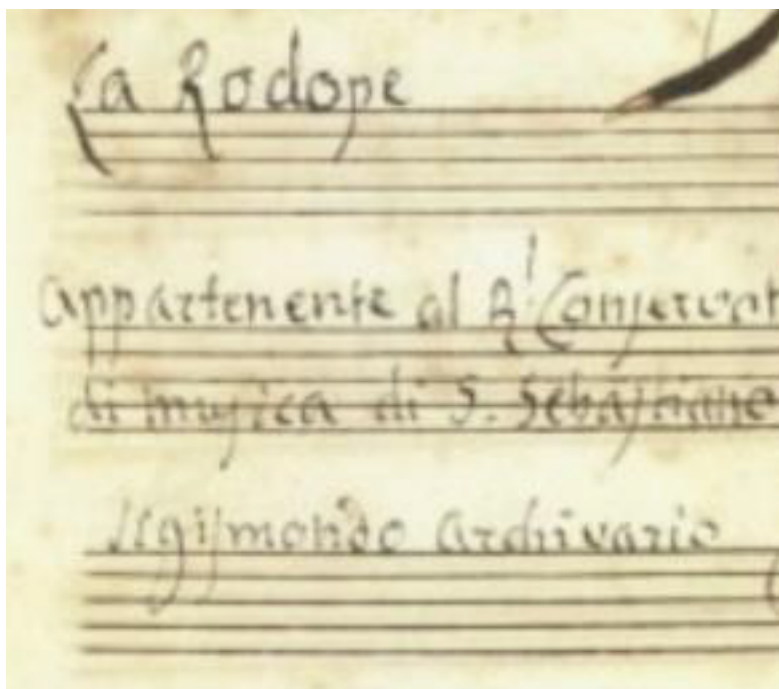 La Rodope
appartenente al R.! Conservat
di musica di S. Sebastiano
Sigismondo archivario